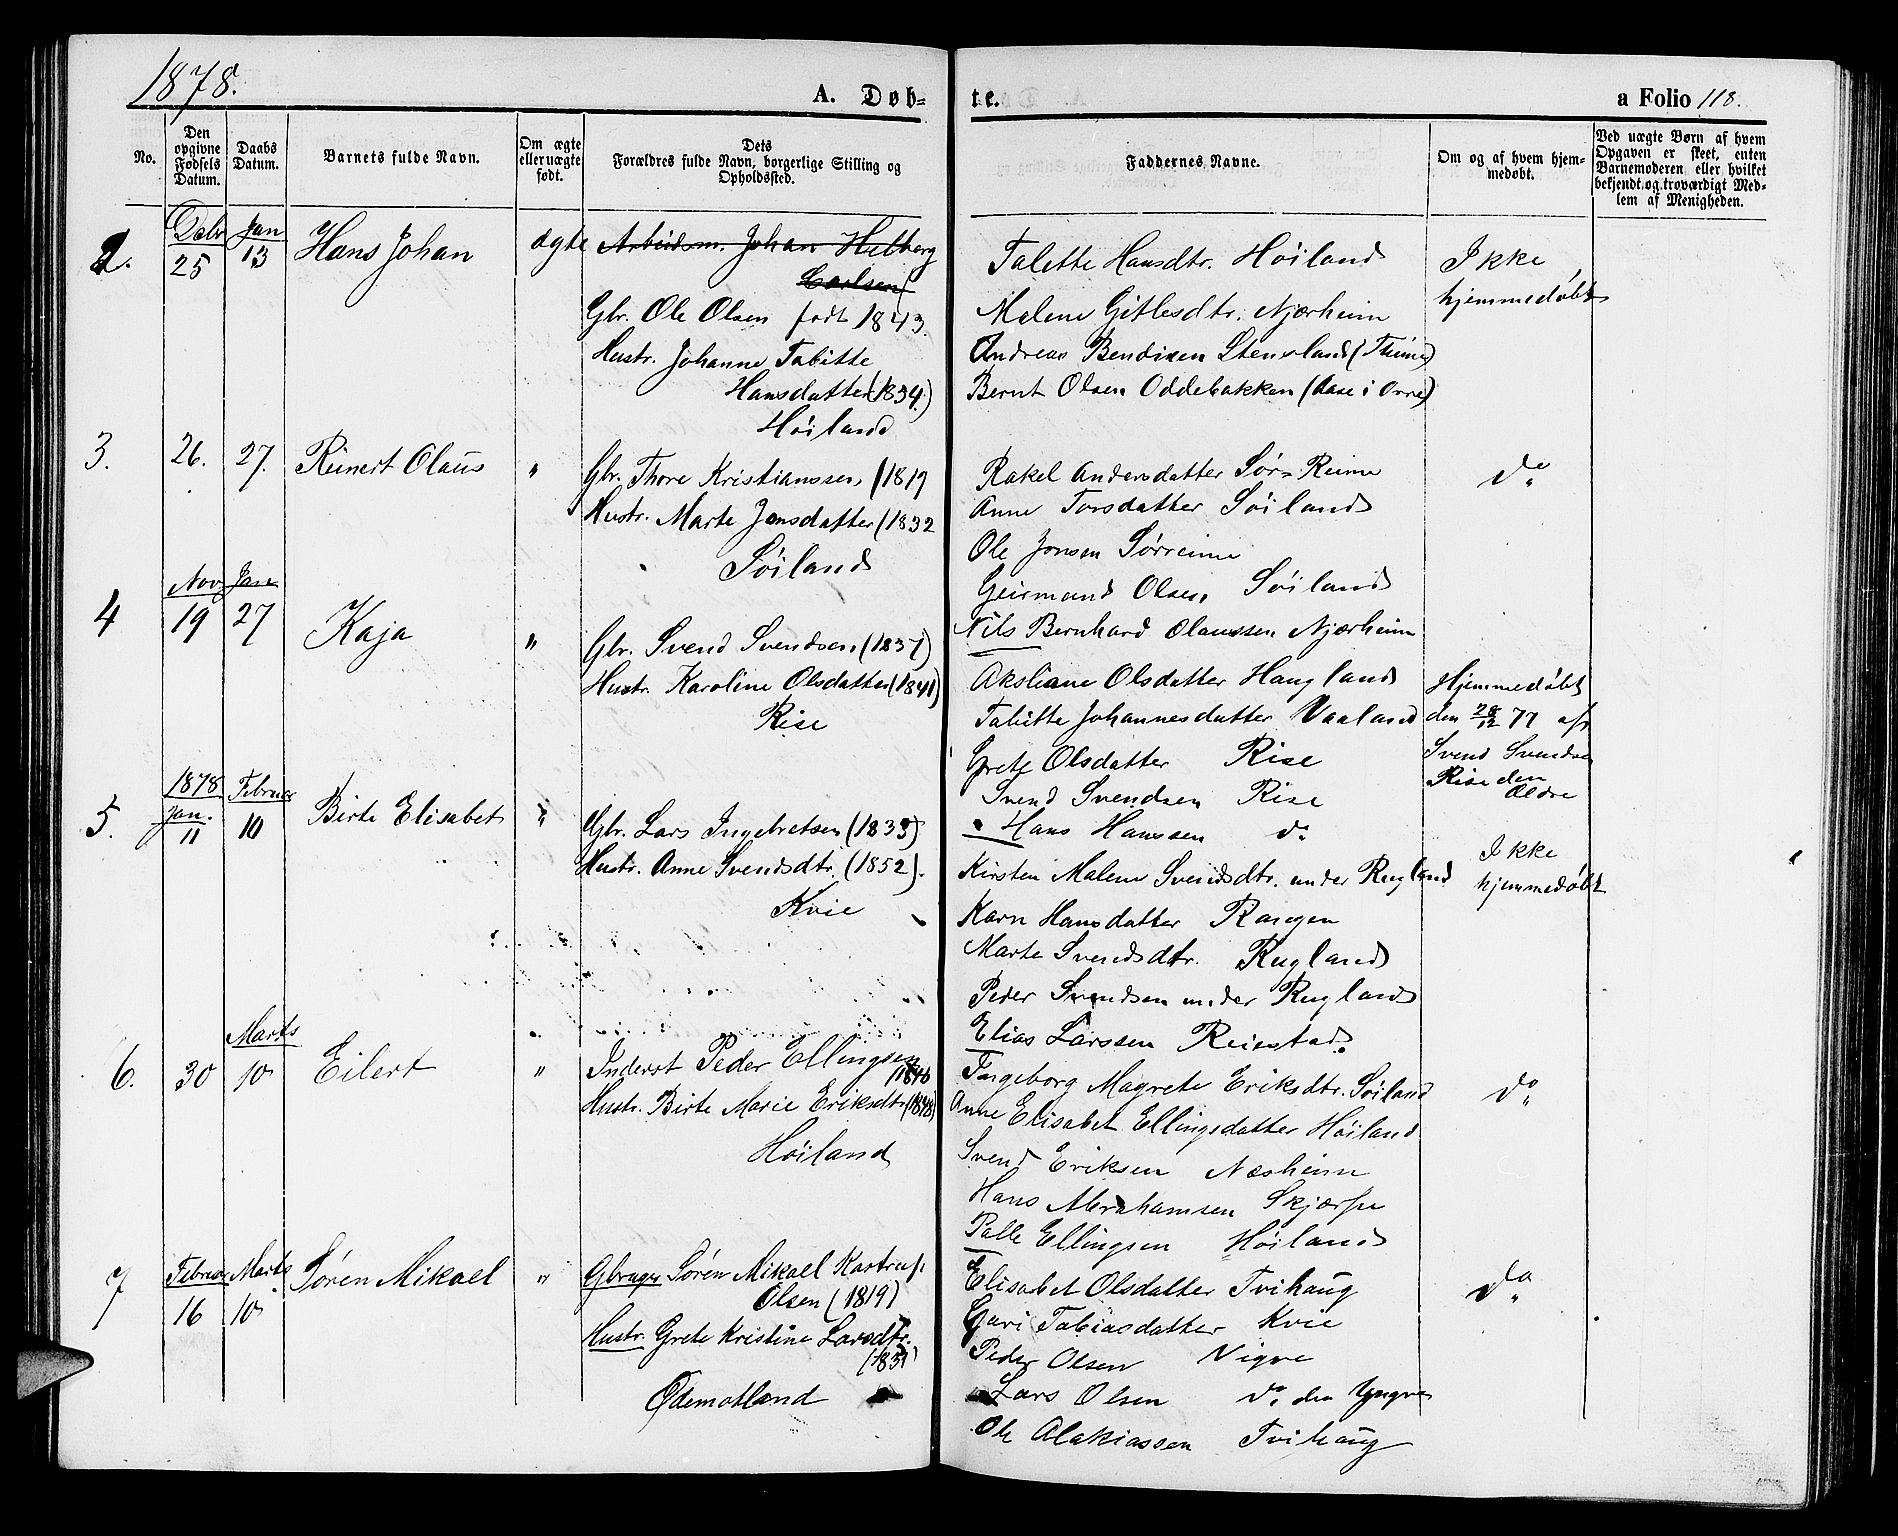 1878.
A. Døb-
te.
a Folio 118.
No.
Den opgivne Fødsels Datum.
Daabs Datum.
Barnets fulde Navn.
Om ægte eller uægte født.
Dets Forældres fulde Navn, borgerlige Stilling og Opholdssted.
Faddernes Navne.
Om og af hvem hjemmedøbt.
Ved uægte Børn af hvem Opgaven er skeet, enten Barnemoderen eller hvilket bekjendt og troværdigt Medlem af Menigheden.
2.
Decbr 25
Jan 13
Hans Johan
ægte
Arbeidsm. Johan Helberg
Carlsen
Gbr. Ole Olsen født 1843.
Hustr. Johanne Tabitte
Hansdatter (1834)
Höiland
Talette Hansdtr. Höiland
Malene Gitlesdtr. Njærheim
Andreas Bendixen Stensland (Thime)
Bernt Olsen Oddebakken (Aase i Orre)
Ikke
hjemmedøbt
3.
26.
27.
Reinert Olaus
"
Gbr. Thore Kristianssen (1819
Hustr. Marte Jonsdatter (1832
Söiland
Rakel Andersdatter Sör-Reime
Anne Torsdatter Söiland
Ole Jonsen Sörreime
Geirmand Olsen Söiland
Nils Bernhard Olaussen Njærheim
do
4
Nov 19
Jan 27
Kaja
"
Gbr. Svend Svendsen (1837)
Hustr. Karoline Olsdatter (1841)
Rise
Aksliane Olsdatter Haugland
Tabitte Johannesdatter Vaaland
Grete Olsdatter Rise
Svend Svendsen Rise
Hans Hanssen do
Hjemmedøbt
den 28/12 77 af
Svend Svendsen
Rise den
Ældre
5.
1878
Jan. 11
Februar 10
Birte Elisabet
"
Gbr. Lars Ingebretsen (1833)
Hustr. Anne Svendsdtr. (1852).
Kvie
Kirsten Malene Svendsdtr. under Rugland
Karn Hansdatter Rangen
Marte Svendsdtr. Rugland
Peder Svendsen under Rugland
Elias Larssen Reiestad.
Ikke
hjemmedøbt
6.
30
Marts 10
Eilert
"
Inderst Peder Ellingsen
1846
Hustr. Birte Marie Eriksdtr (1848)
Höiland
Ingeborg Magrete Eriksdtr. Söiland
Anne Elisabet Ellingsdatter Höiland
Svend Eriksen Næsheim
Hans Abrahamsen Skjærpe
Palle Ellingsen Höiland
do
7
Februar 16
Marts 10
Sören Mikael
"
Gbruger Sören Mikael Kartrup
Olsen (1819)
Hustr. Grete Kristine Larsdtr.
Ødemotland
Elisabet Olsdatter Tvihaug
Guri Tabiasdatter Kvie
Peder Olsen Vigre
Lars Olsen do den Yngre
Ole Alakiassen Tvihaug
do